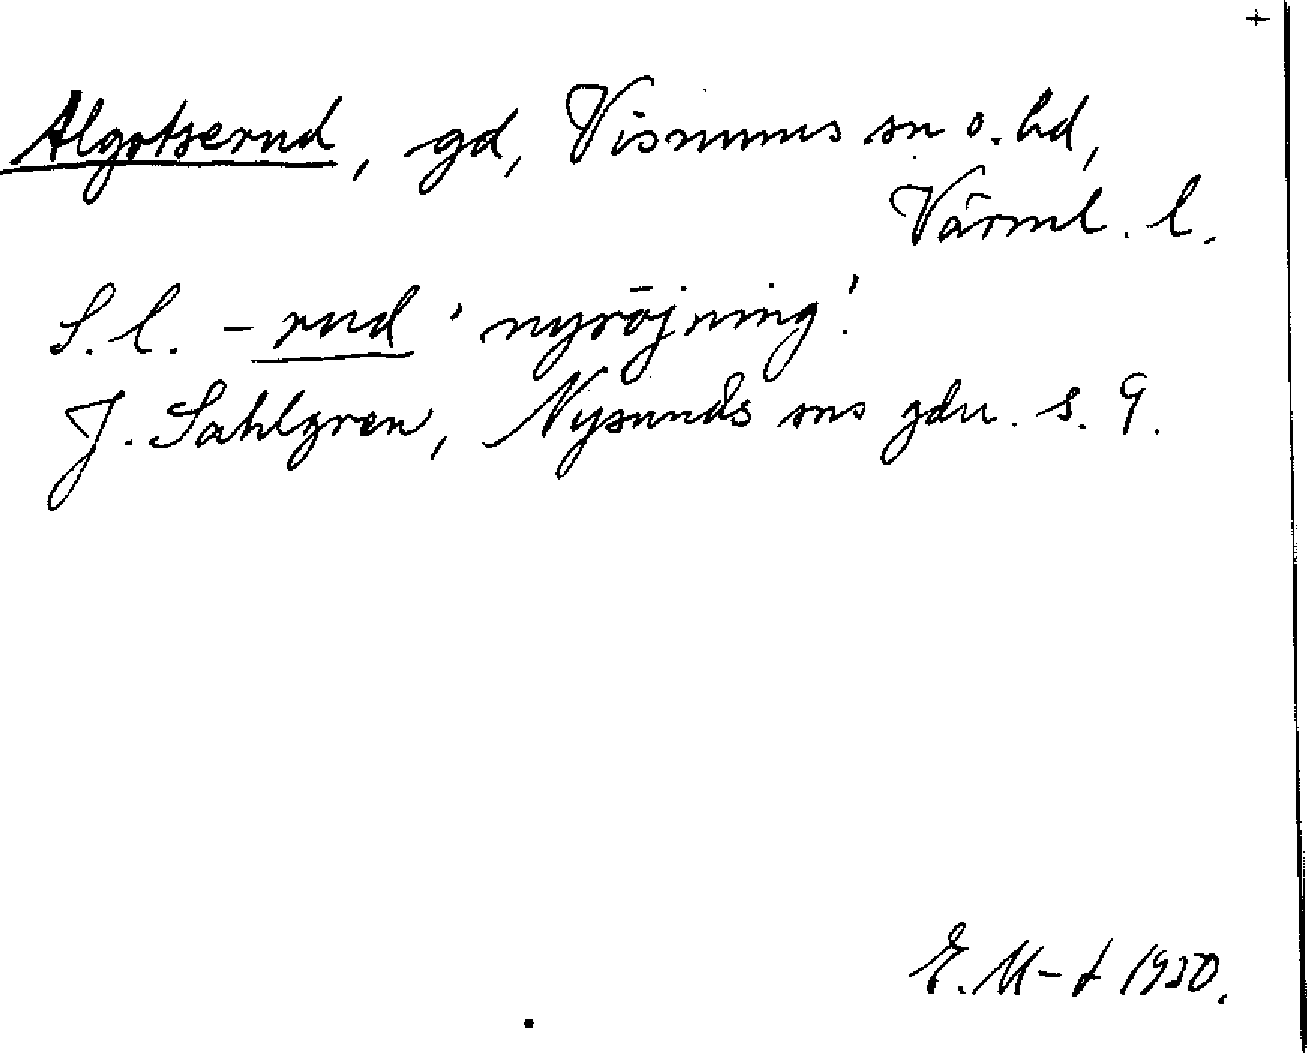 +
Algotserud, gd, Visnums sn o. hd,
Värml. l.
S.l. -rud 'nyröjning'.
J. Sahlgren, Nysunds sns gdn. s. 9.
E. M-t 1920.